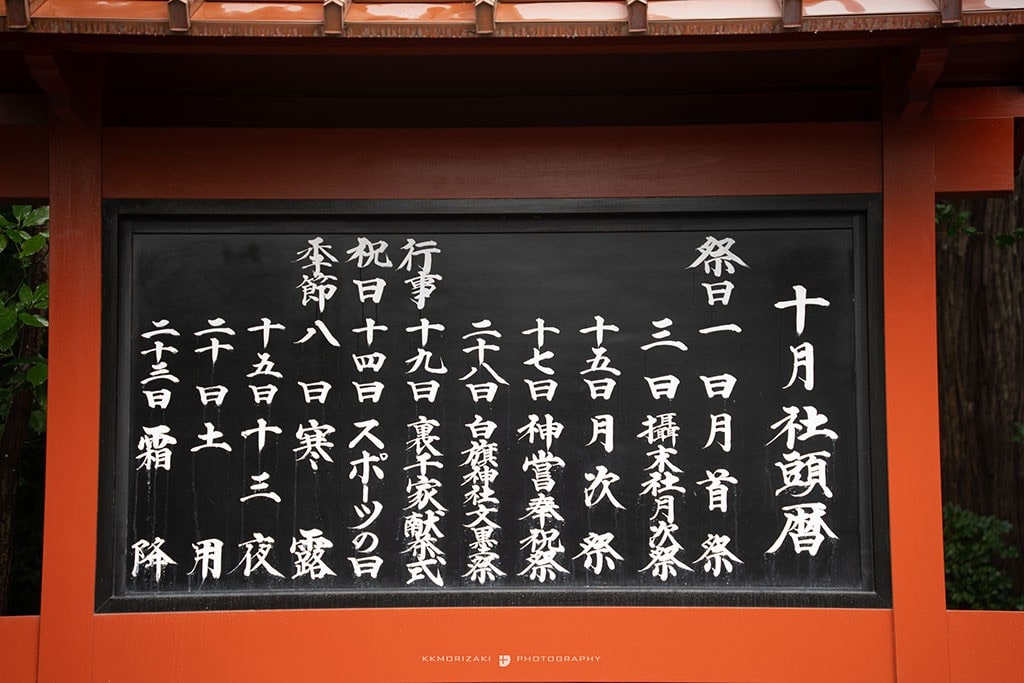 十月社頭暦
祭日一日月首祭
三日攝末社月次祭
十五日月次祭
十七日神嘗奉祝祭
二十八日白旗神社文墨祭
行事十九日裏千家献茶式
祝日十四日スポーツの日
季節八日寒露
十五日十三夜
二十日土用
二十三日霜降
KKMORIZAKI PHOTOGRAPHY